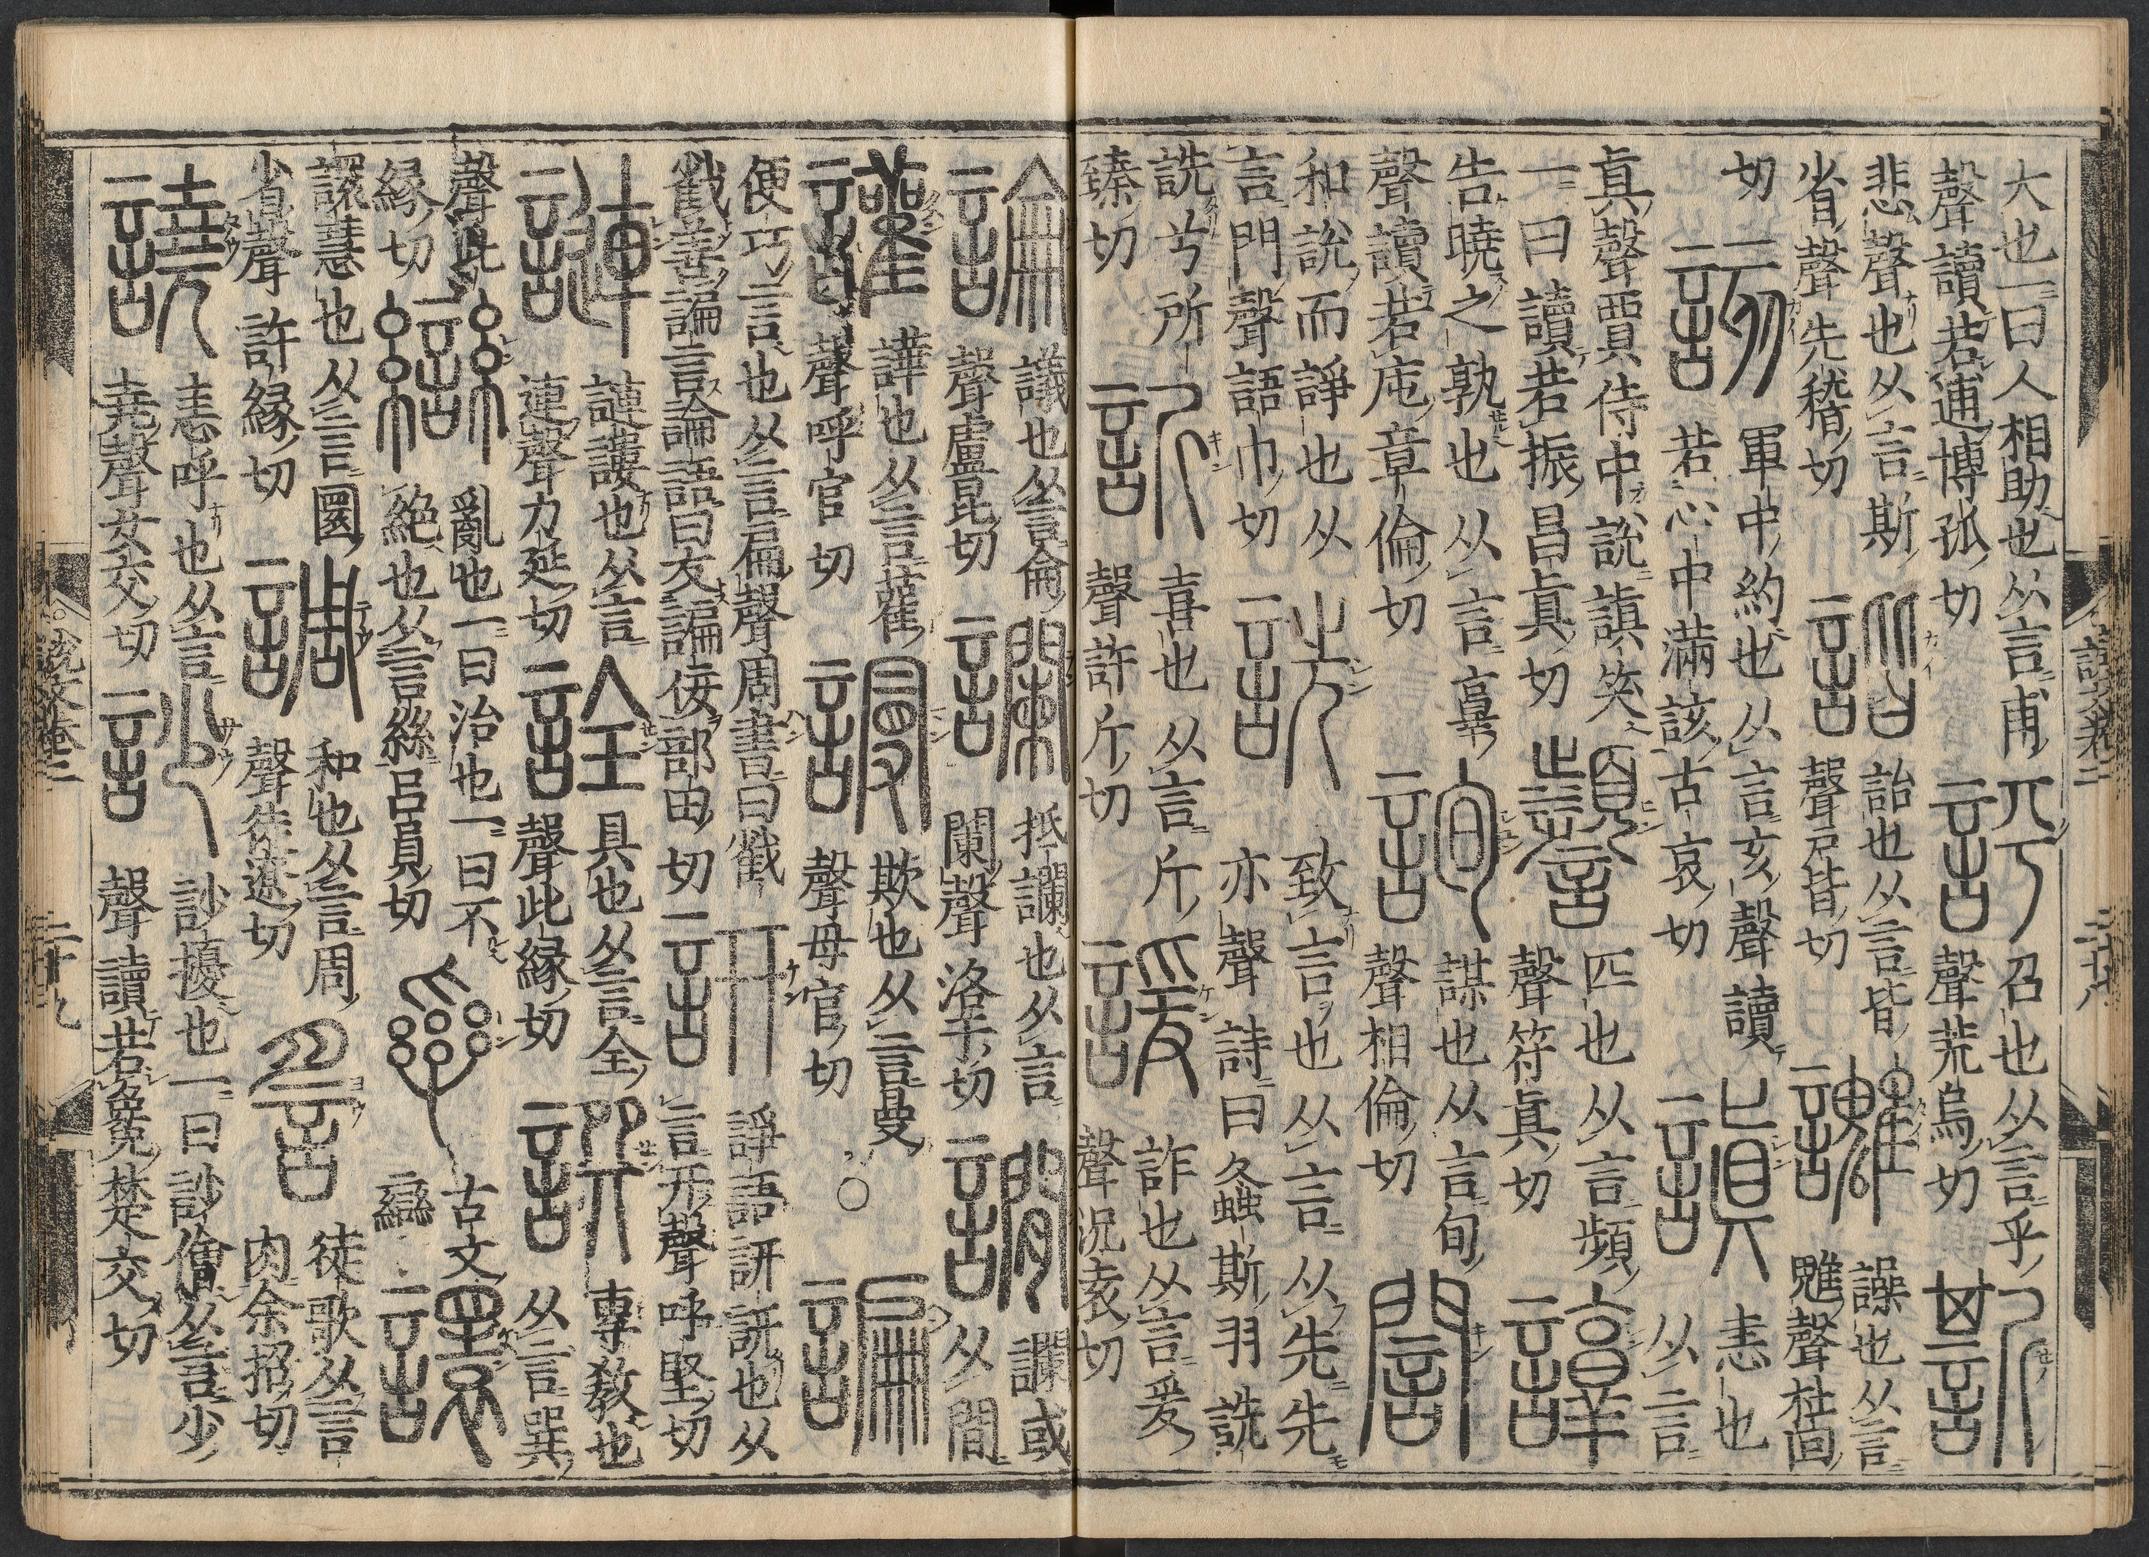 大也一曰人相助也从言甫
聲讀若逋博孤切
謼
召也从言乎
聲荒烏切
悲聲也从言斯
省聲先稽切
諧
詥也从言皆
聲戶皆切
譟也从言
魋聲杜回
切
該
軍中約也从言亥聲讀
若心中滿該古哀切
謓
恚也
从言
真聲賈侍中說謓笑
一曰讀若振昌真切
匹也从言頻
聲符真切
諄
告曉之孰也从言𦎧
聲讀若庉章倫切
詢
謀也从言旬
聲相倫切
誾
和說而諍也从
言門聲語巾切
詵
致言也从言从先先
亦聲詩曰螽斯羽詵
詵兮所
臻切
訢
喜也从言斤
聲許斤切
諼
詐也从言爰
聲況袁切
說文卷三 二十八
論
議也从言侖
聲盧昆切
讕
抵讕也从言
闌聲洛干切
讕或
从間
讙
譁也从言雚
聲呼官切
謾
欺也从言曼
聲母官切
諞
便巧言也从言扁聲周書曰戩
戩善諞言論語曰友諞佞部田切
訮
諍語訮訮也从
言幵聲呼堅切
謰
謰謱也从言
連聲力延切
詮
具也从言全
聲此緣切
譔
專教也
从言巽
聲此
緣切
䜌
亂也一曰治也一曰不
絕也从言絲呂員切
古文
䜌
譞
譞慧也从言圜
省聲許緣切
調
和也从言周
聲徒遼切
䚻
徒歌从言
肉余招切
譊
恚呼也从言
堯聲女交切
訬
訬擾也一曰訬獪从言少
聲讀若毚楚交切
說文卷三 二十九